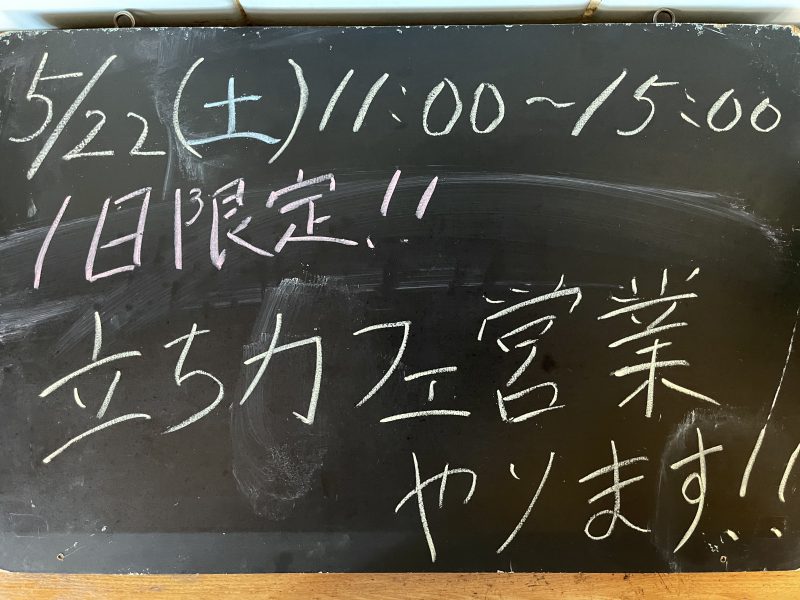 5/22(土)11:00~15:00
1日限定!!
立ちカフェ営業
やります!!